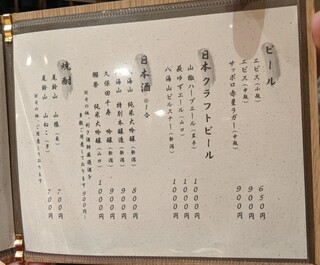 ビール
エビス(小瓶) 650円
エビス(中瓶) 900円
サッポロ赤星ラガー(中瓶) 900円
日本クラフトビール
山椒ハーブエール(岩手) 1000円
長州ゆずエール(山口) 1000円
八海山ピルスナー(新潟) 1000円
日本酒 ※1合
八海山 純米大吟醸(新潟) 800円
八海山 特別本醸造(新潟) 900円
久保田千寿 吟醸(新潟) 900円
獺祭 純米大吟醸(山口) 1000円
焼酎
尾鈴山 山猿(麦) 700円
尾鈴山 山ねこ(芋) 700円